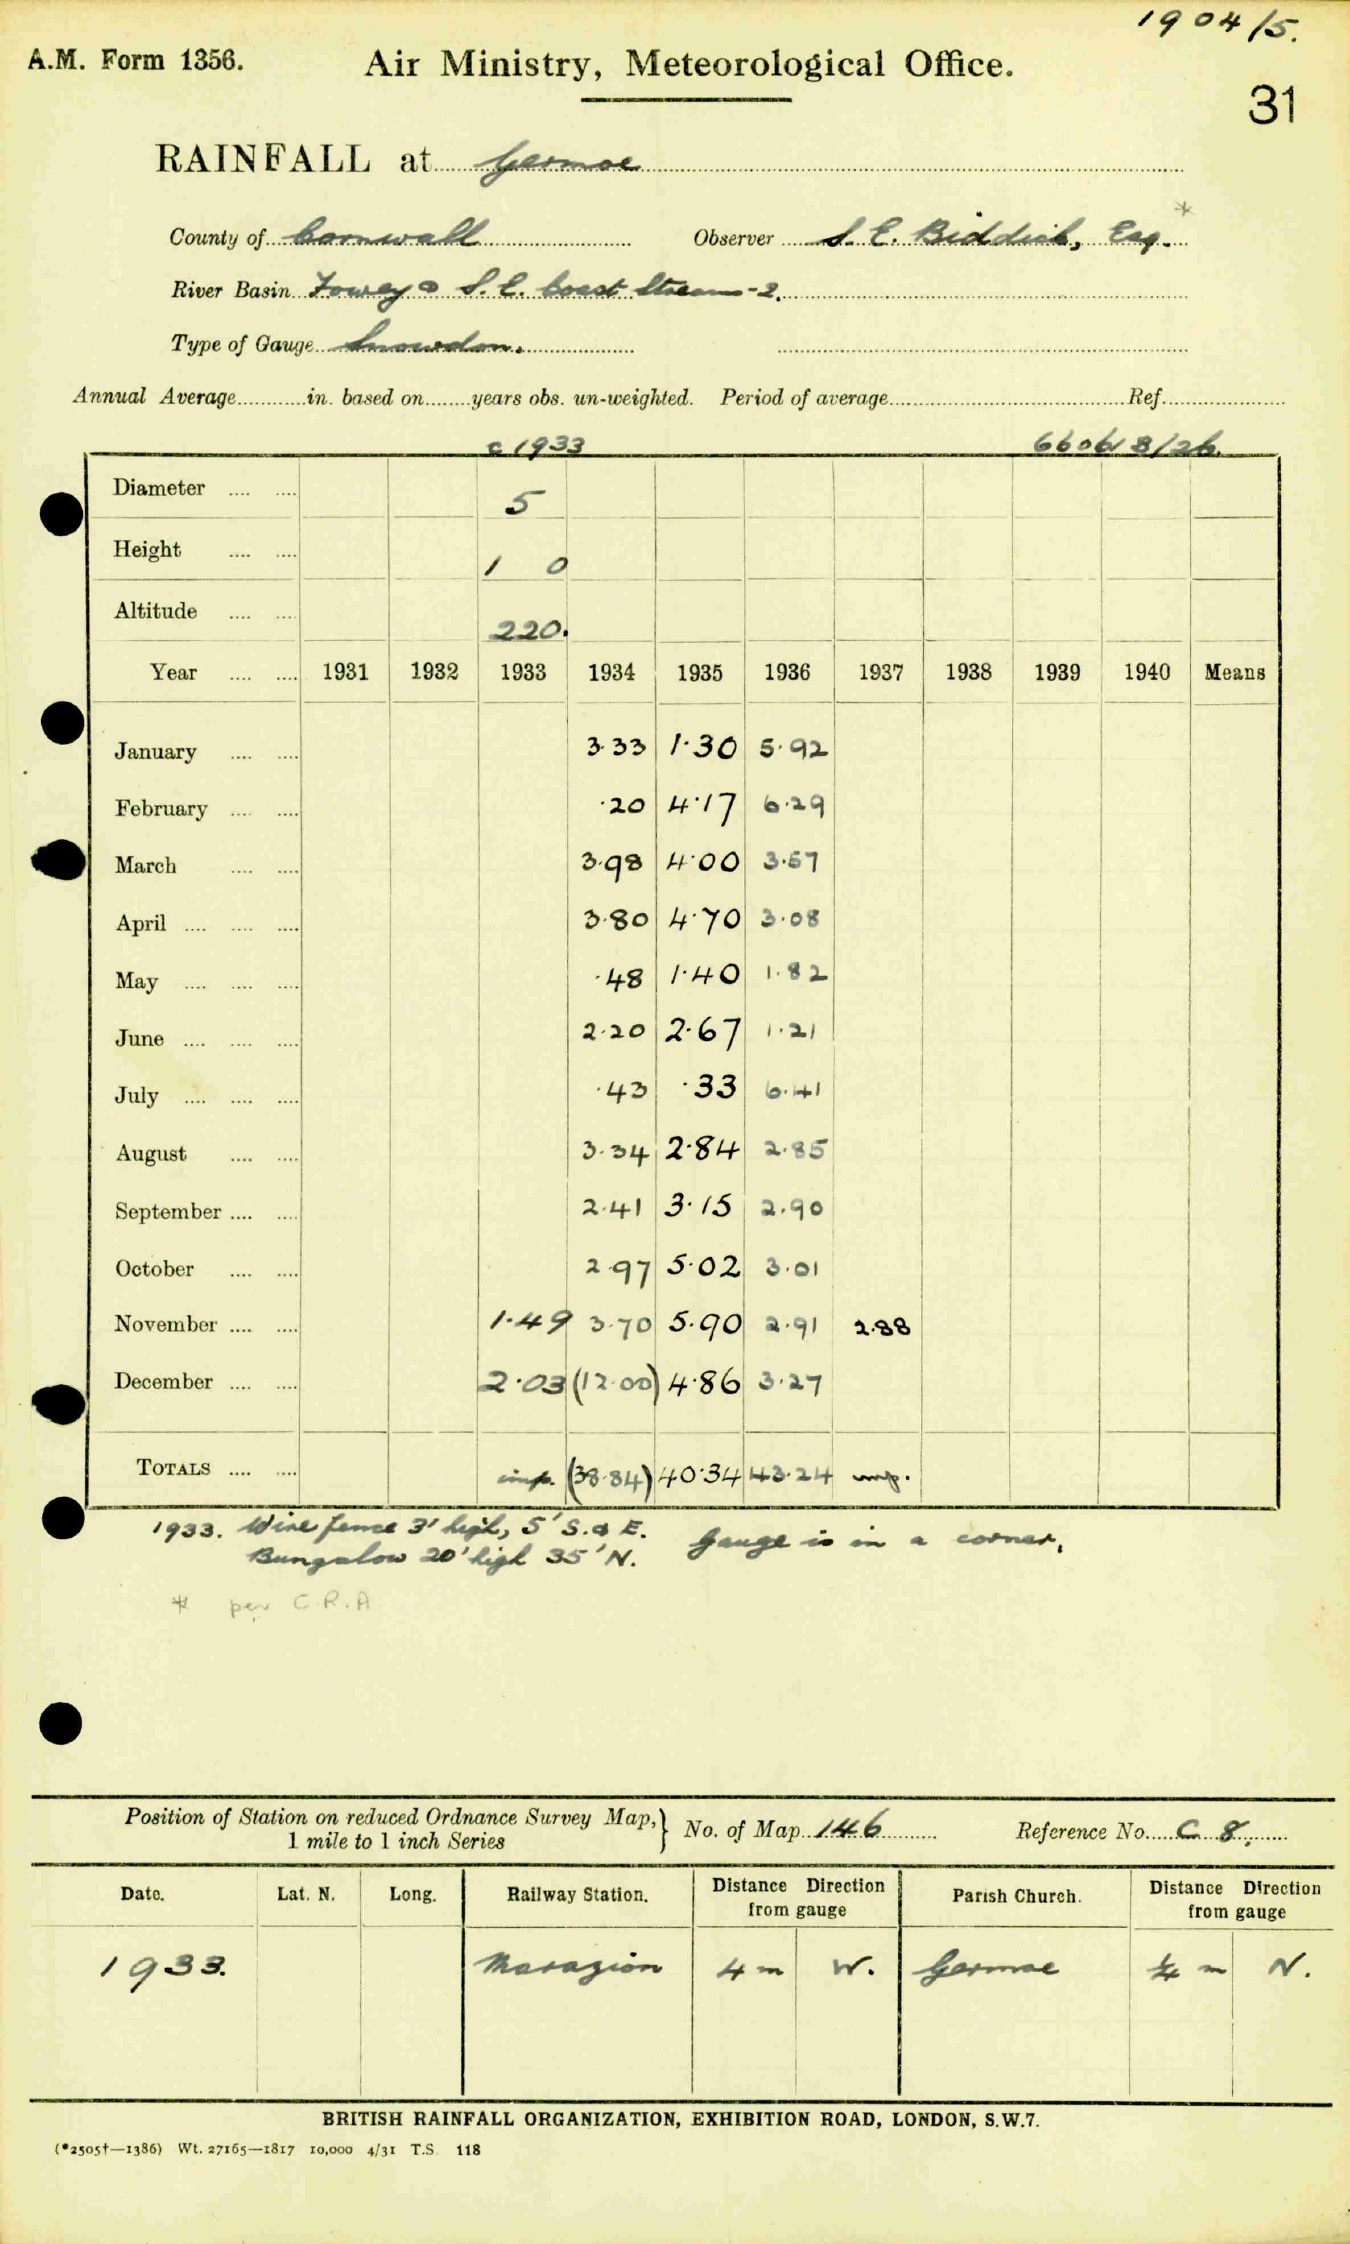 1904/5.
A.M. Form 1356. Air Ministry, Meteorological Office.
31
RAINFALL at Germoe
County of Cornwall Observer S. E. Biddick, Esq. *
River Basin Fowey & S.E. Coast Streams-2.
Type of Gauge Snowdon.
Annual Average in. based on years obs. un-weighted. Period of average Ref.
c 1933 8/26.
Diameter 5
Height 1 0
Altitude 220.
Year 1931 1932 1933 1934 1935 1936 1937 1938 1939 1940 Means
January 3.33 1.30 5.92
February .20 4.17 6.29
March 3.98 4.00 3.57
April 3.80 4.70 3.08
May .48 1.40 1.82
June 2.20 2.67 1.21
July .43 .33 6.41
August 3.34 2.84 2.85
September 2.41 3.15 2.90
October 2.97 5.02 3.01
November 1.49 3.70 5.90 2.91 2.88
December 2.03 (12.00) 4.86 3.27
TOTALS imp. (38.84) 40.34 43.24 imp.
1933. Wire fence 3' high, 5' S. & E. Gauge is in a corner.
Bungalow 20' high 35' N.
* per C.R.A
Position of Station on reduced Ordnance Survey Map, 1 mile to 1 inch Series } No. of Map 146 Reference No. C 8.
Date. Lat. N. Long. Railway Station. Distance Direction from gauge Parish Church. Distance Direction from gauge
1933. Marazion 4 m W. Germoe ¼ m N.
BRITISH RAINFALL ORGANIZATION, EXHIBITION ROAD, LONDON, S.W.7.
(*2505†—1386) Wt. 27165—1817 10,000 4/31 T.S. 118